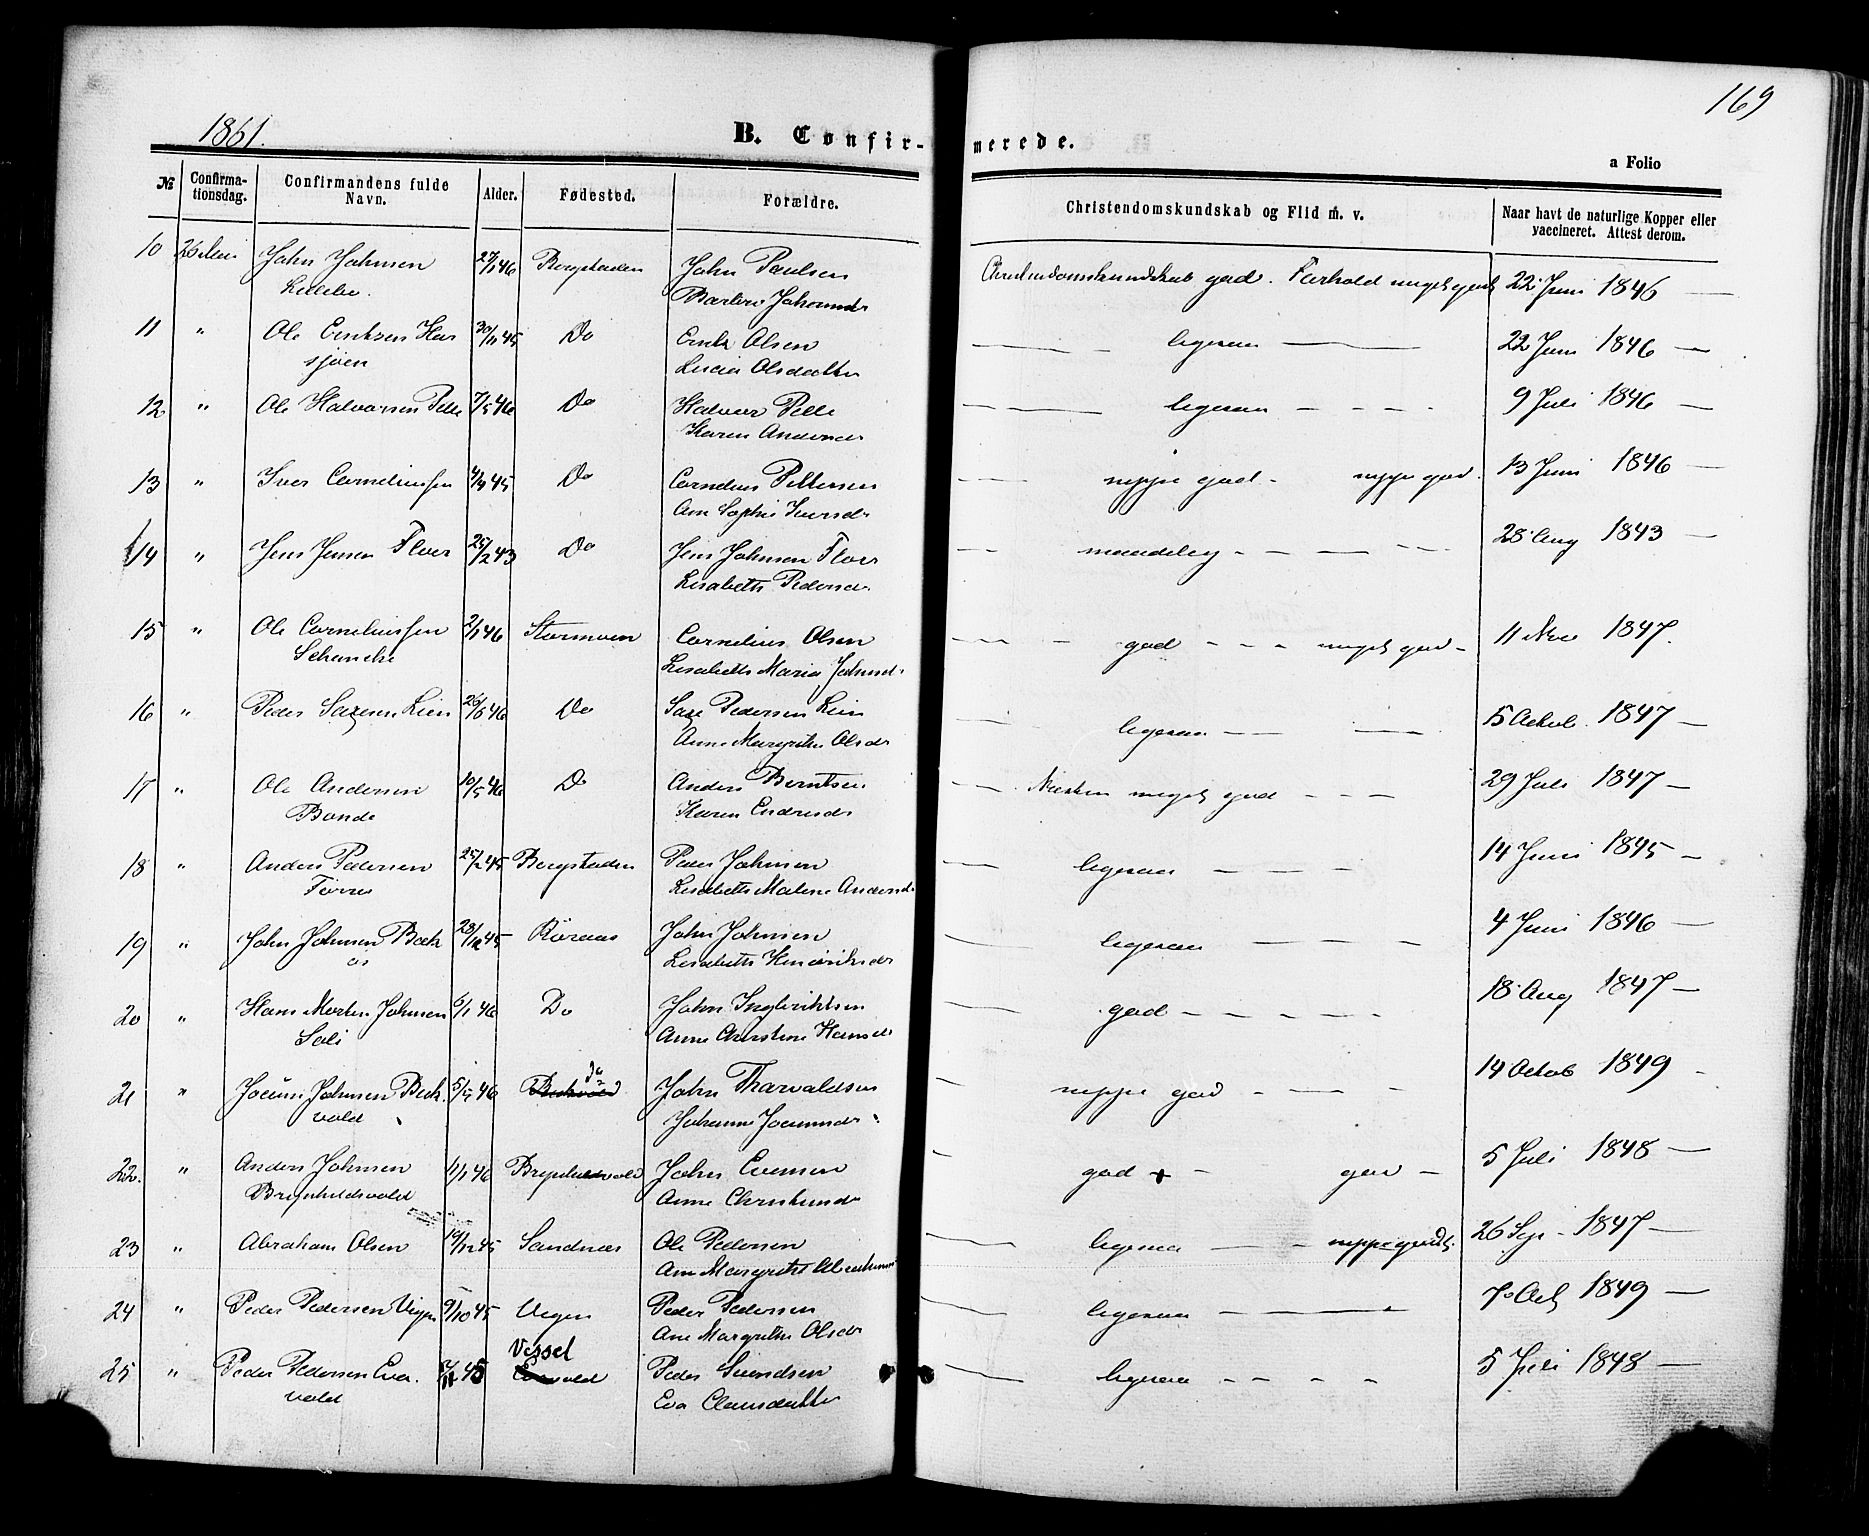 169
1861.
B. Confir-merede.
a Folio
№ Confirma-tionsdag. Confirmandens fulde Navn. Alder. Fødested. Forældre. Christendomskundskab og Flid m. v. Naar havt de naturlige Kopper eller vaccineret. Attest derom.
10 26 Mai John Johnsen 27/1 46 Bergstaden John Paulsen Christendomskundskab god. Forhold meget godt 22 Juni 1846 —
Johnsd.
11 " Ole Eriksen Har 30/11 45 Do Erik Olsen — ligesaa — 22 Juni 1846 —
sjøen Lucia Olsdatter
12 " Ole Halvorsen Pelle 7/5 46 Do Halvor Pelle — ligesaa — 9 Juli 1846 —
Karen Andersd.
13 " Iver Corneliussen 45 Do Cornelius Pettersen — neppe god - neppe god. 13 Juni 1846 —
Ane Sophie Iversd.
14 " Jens Jensen Floer 25/2 43 Do Jens Johnsen Floer — maadelig — 28 Aug 1843 —
Lisabeth Pedersd.
15 " Ole Corneliussen 2/1 46 Stormoen Cornelius Olsen — god - - - meget god - 11 Nov 1847.
Schancke Lisabeth Maria Johnsd.
16 " Peder Saxesen Lien 26/6 46 Do Saxe Pedersen Lien ligesaa — 5 Octob. 1847 —
Anne Margrethe Olsd.
17 " Ole Andersen 10/5 46 Do Anders Berntsen — Næsten meget god - - - 29 Juli 1847 —
Bonde Karen Endresd.
18 " Anders Pedersen 25/2 45 Bergstaden Peder Johnsen — ligesaa - - - 14 Juni 1845 —
Torres Lisabeth Malene Andersd.
19 " John Johnsen Bak 28/12 45 Röraas John Johnsen — ligesaa - - - 4 Juni 1846 —
aas Lisabeth Henriksd.
20 " Hans Morten Johnsen 6/1 46 Do John Ingbrigtsen — god - - - 18 Aug 1847 —
Soli Anne Christine Hansd.
21 " Jocum Johnsen Bek 5/5 46 Do John Tharvaldsen - neppe god - - - 14 Octob 1849 -
vold Johanne Jocumsd.
22. " Anders Johnsen 11/1 46 Brynhildsvold John Evensen - god + - god - 5 Juli 1848 —
Brynhildsvold Anne Christensd.
23 " Abraham Olsen 19/12 45 Sandnæs Ole Pedersen — ligesaa — - neppe godt. 26 Sep - 1847 —
Ane Margrethe
24 " Peder Pedersen Vigen 9/10 45 Vigen Peder Pedersen — ligesaa — 7 Oct 1849 —
Ane Margrethe Olsd.
25 " Peder Pedersen Eva 45 Vessel Peder Svendsen — ligesaa - - - 5 Juli 1848 —
vold Eva Clausdatter